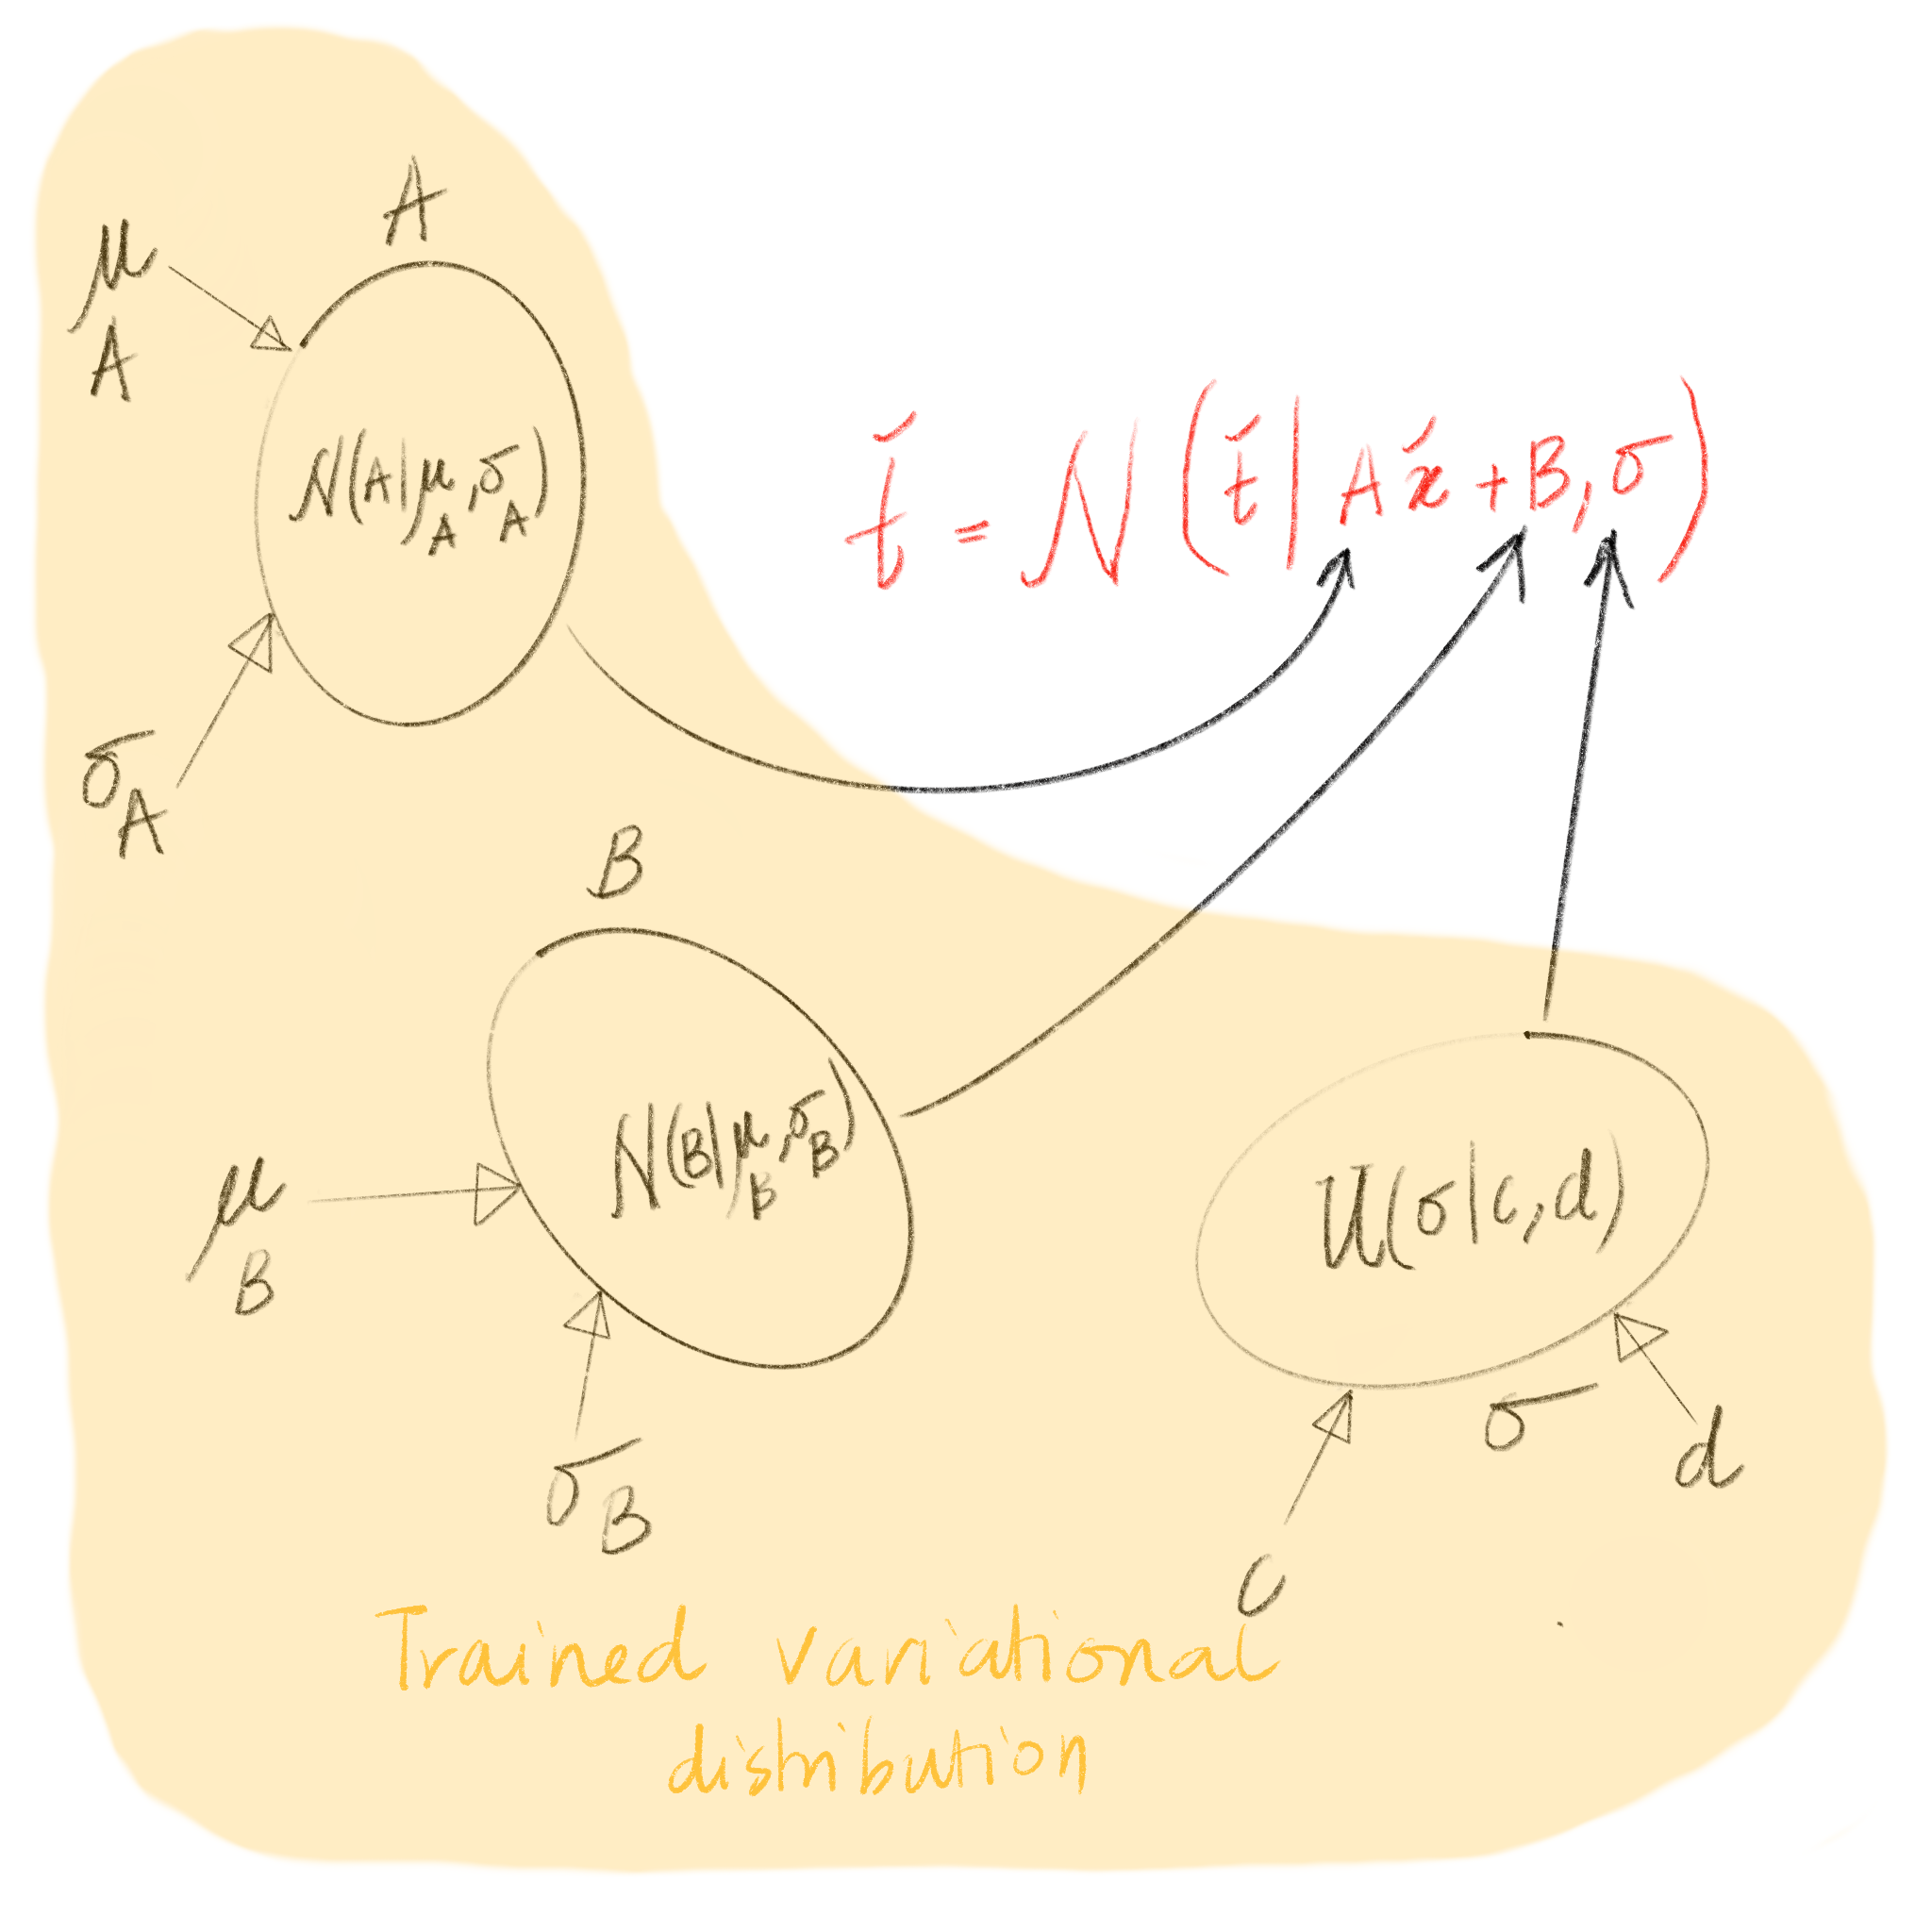 A
μ_A
N(A|μ_A,σ_A)
σ_A
t̄ = N(t̄|Ax̄+B,σ)
B
N(B|μ_B,σ_B)
μ_B
σ_B
U(σ|c,d)
σ
d
c
Trained variational
distribution